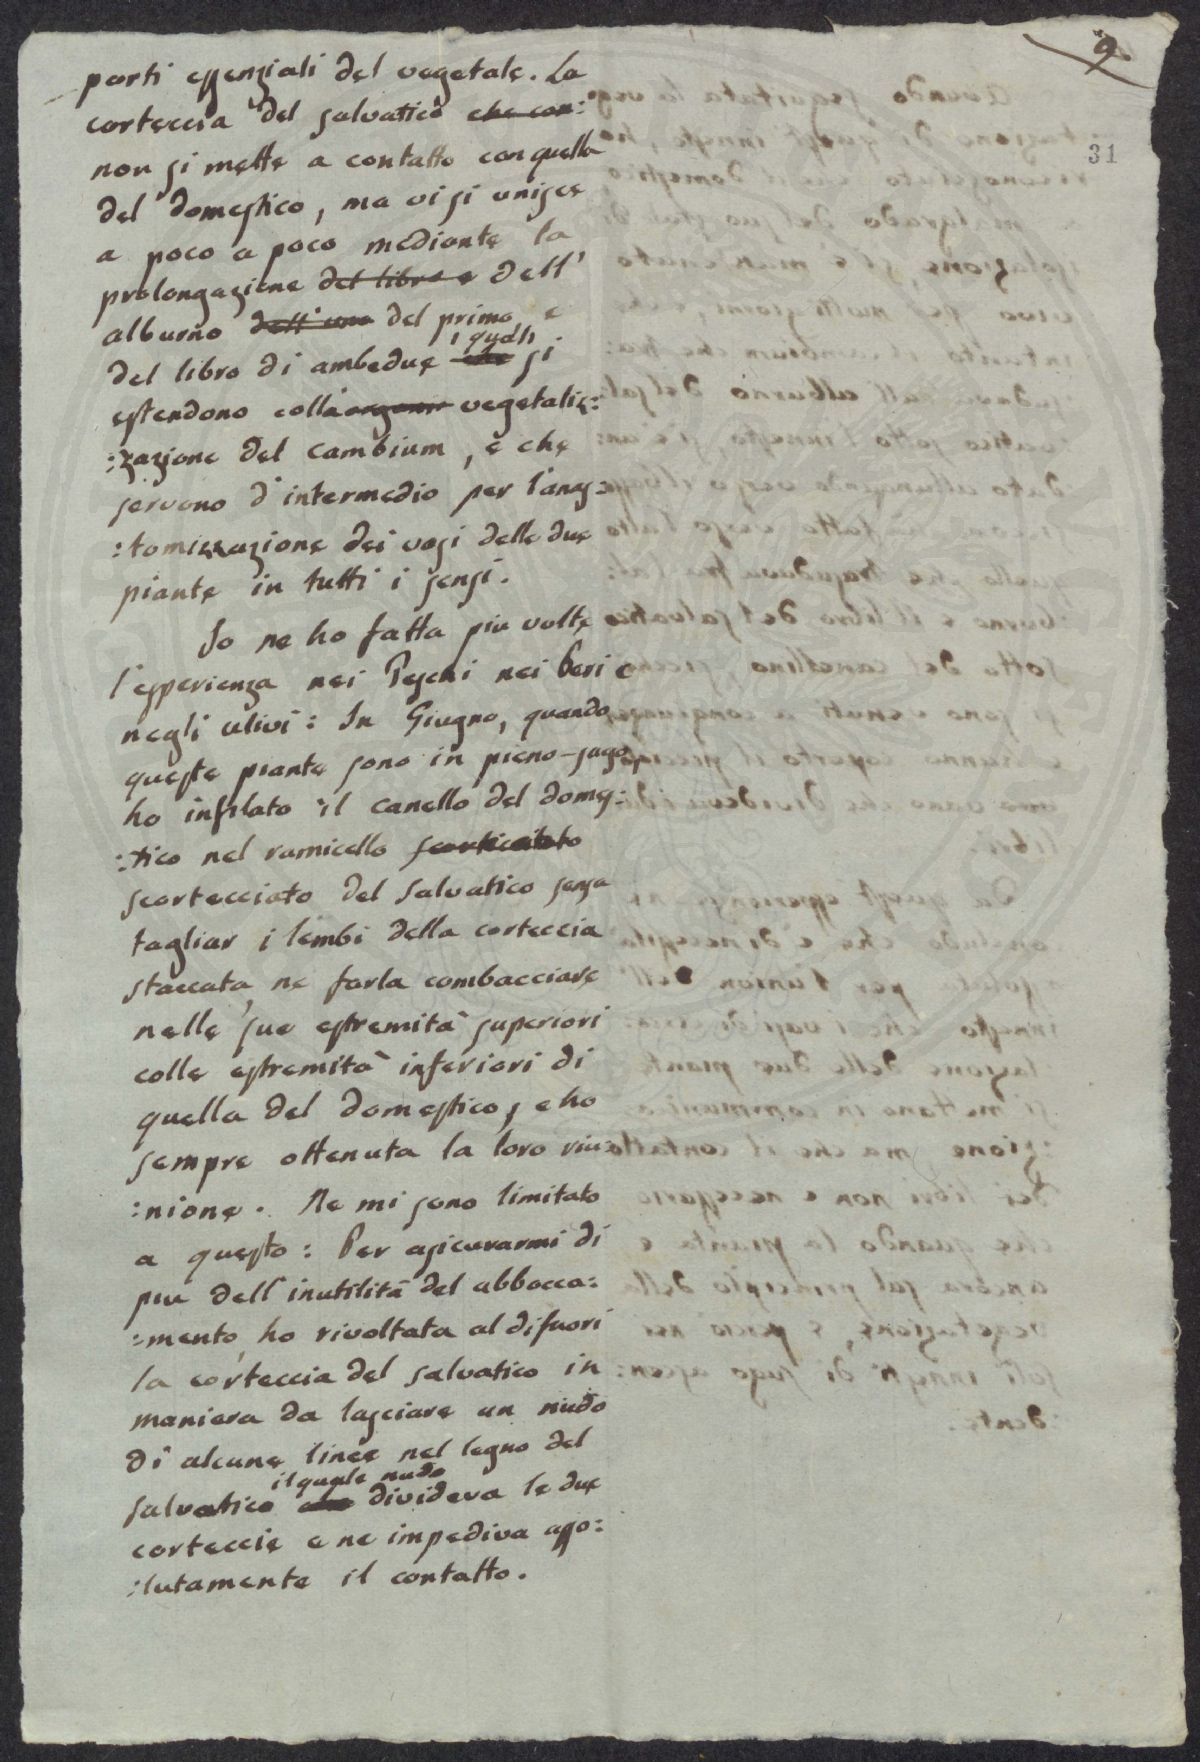 9
31
parti essenziali del vegetale. La
corteccia del salvatico che con:
non si mette a contatto con quella
del domestico, ma vi si unisce
a poco a poco mediante la
prolongazione del libro e dell'
alburno dell'uno del primo e
del libro di ambedue che i quali si
estendono colla organiz vegetaliz:
:zazione del cambium, e che
servono d'intermedio per l'anas:
:tomizzazione dei vasi delle due
piante in tutti i sensi.
Io ne ho fatta piu volte
l'esperienza nei Peschi nei Peri e
negli ulivi: In Giugno, quando
queste piante sono in pieno sugo,
ho infilato il canello del domes:
:tico nel ramicello scorticato
scortecciato del salvatico senza
tagliar i lembi della corteccia
staccata, ne farla combacciare
nelle sue estremità superiori
colle estremità inferiori di
quella del domestico, e ho
sempre ottenuta la loro riu:
:nione. Ne mi sono limitato
a questo: Per asicurarmi di
piu dell'inutilità del abbocca:
:mento, ho rivoltata al difuori
la corteccia del salvatico in
maniera da lasciare un nudo
di alcune linee nel legno del
salvatico che il quale nudo divideva le due
corteccie e ne impediva asso:
:lutamente il contatto.